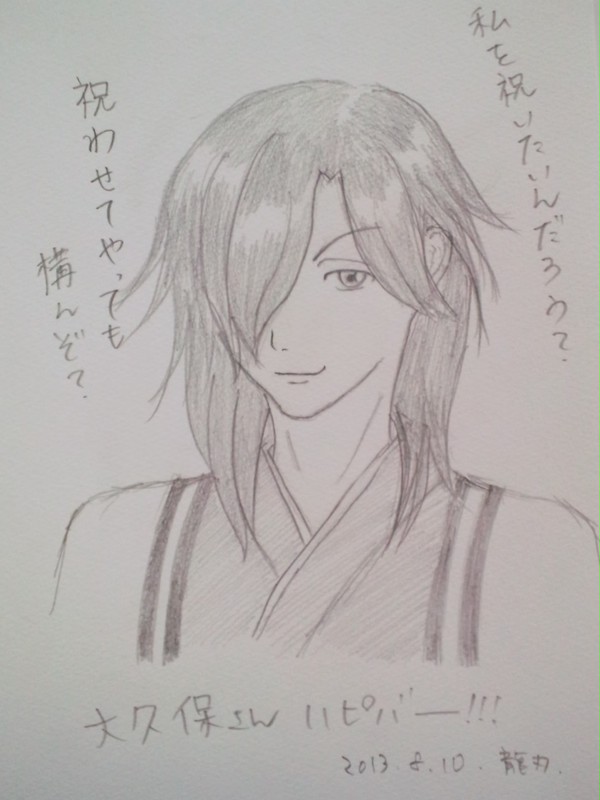 私を祝いたいんだろう?
祝わせてやっても
構んぞ?
大久保さん ハピバー!!!
2013.8.10. 龍力.